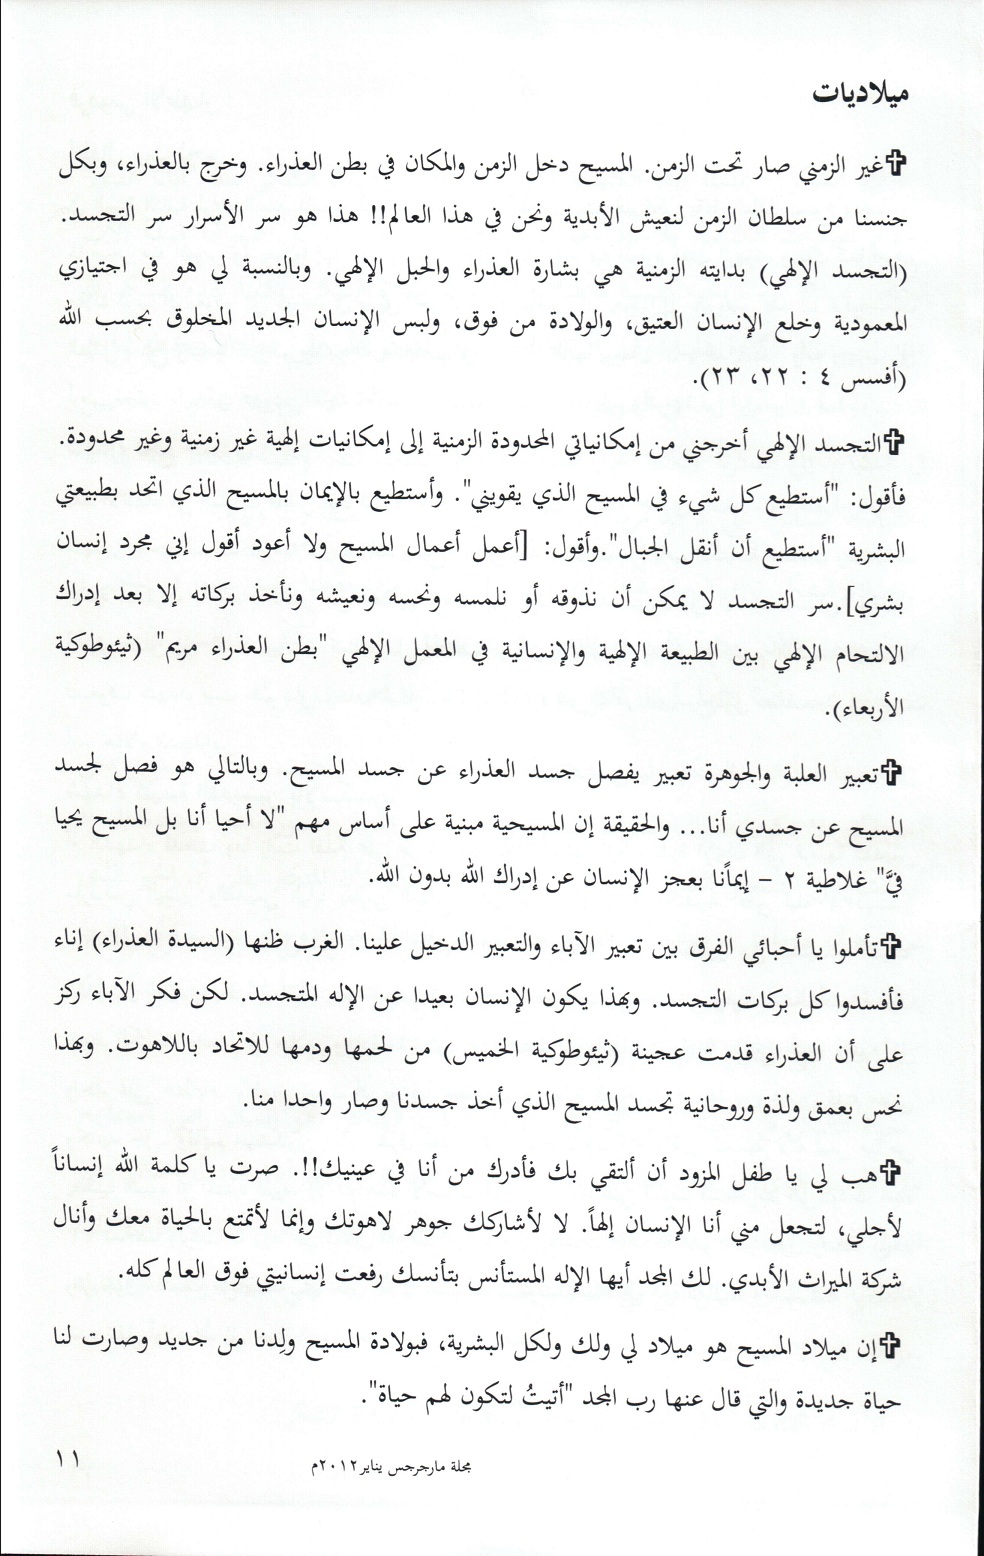 ميلاديات
✞غير الزمني صار تحت الزمن. المسيح دخل الزمن والمكان في بطن العذراء. وخرج بالعذراء، وبكل
جنسنا من سلطان الزمن لنعيش الأبدية ونحن في هذا العالم!! هذا هو سر الأسرار سر التجسد.
(التجسد الإلهي) بدايته الزمنية هي بشارة العذراء والحبل الإلهي. وبالنسبة لي هو في اجتيازي
المعمودية وخلع الإنسان العتيق، والولادة من فوق، ولبس الإنسان الجديد المخلوق بحسب الله
(أفسس ٤ : ٢٢، ٢٣).
✞التجسد الإلهي أخرجني من إمكانياتي المحدودة الزمنية إلى إمكانيات إلهية غير زمنية وغير محدودة.
فأقول: "أستطيع كل شيء في المسيح الذي يقويني". وأستطيع بالإيمان بالمسيح الذي اتحد بطبيعتي
البشرية "أستطيع أن أنقل الجبال".وأقول: [أعمل أعمال المسيح ولا أعود أقول إني مجرد إنسان
بشري].سر التجسد لا يمكن أن نذوقه أو نلمسه ونحسه ونعيشه ونأخذ بركاته إلا بعد إدراك
الالتحام الإلهي بين الطبيعة الإلهية والإنسانية في المعمل الإلهي "بطن العذراء مريم" (ثيئوطوكية
الأربعاء).
✞تعبير العلبة والجوهرة تعبير يفصل جسد العذراء عن جسد المسيح. وبالتالي هو فصل لجسد
المسيح عن جسدي أنا... والحقيقة إن المسيحية مبنية على أساس مهم "لا أحيا أنا بل المسيح يحيا
فيَّ" غلاطية ٢ – إيمانًا بعجز الإنسان عن إدراك الله بدون الله.
✞تأملوا يا أحبائي الفرق بين تعبير الآباء والتعبير الدخيل علينا. الغرب ظنها (السيدة العذراء) إناء
فأفسدوا كل بركات التجسد. وبهذا يكون الإنسان بعيدا عن الإله المتجسد. لكن فكر الآباء ركز
على أن العذراء قدمت عجينة (ثيئوطوكية الخميس) من لحمها ودمها للاتحاد باللاهوت. وبهذا
نحس بعمق ولذة وروحانية تجسد المسيح الذي أخذ جسدنا وصار واحدا منا.
✞هب لي يا طفل المزود أن ألتقي بك فأدرك من أنا في عينيك!!. صرت يا كلمة الله إنساناً
لأجلي، لتجعل مني أنا الإنسان إلهاً. لا لأشاركك جوهر لاهوتك وإنما لأتمتع بالحياة معك وأنال
شركة الميراث الأبدي. لك المجد أيها الإله المستأنس بتأنسك رفعت إنسانيتي فوق العالم كله.
✞إن ميلاد المسيح هو ميلاد لي ولك ولكل البشرية، فبولادة المسيح ولِدنا من جديد وصارت لنا
حياة جديدة والتي قال عنها رب المجد "أتيتُ لتكون لهم حياة".
مجلة مارجرجس يناير٢٠١٢م
١١